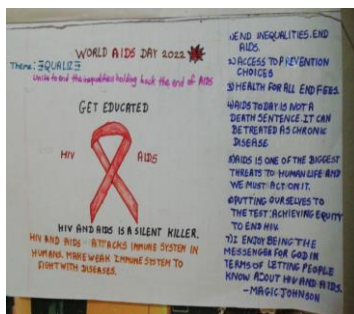 WORLD AIDS DAY 2022
Theme: EQUALIZE
Unite to end the inequalities holding back the end of AIDS
GET EDUCATED
HIV
AIDS
HIV AND AIDS IS A SILENT KILLER.
HIV AND AIDS ATTACKS IMMUNE SYSTEM IN
HUMANS. MAKE WEAK IMMUNE SYSTEM TO
FIGHT WITH DISEASES.
1) END INEQUALITIES. END
AIDS.
2) ACCESS TO PREVENTION
CHOICES
3) HEALTH FOR ALL END FEES.
4) AIDS TODAY IS NOT A
DEATH SENTENCE. IT CAN
BE TREATED AS CHRONIC
DISEASE
5) AIDS IS ONE OF THE BIGGEST
THREATS TO HUMAN LIFE AND
WE MUST ACT ON IT.
6) PUTTING OURSELVES TO
THE TEST: ACHIEVING EQUITY
TO END HIV.
7) I ENJOY BEING THE
MESSENGER FOR GOD IN
TERMS OF LETTING PEOPLE
KNOW ABOUT HIV AND AIDS.
- MAGIC JOHNSON